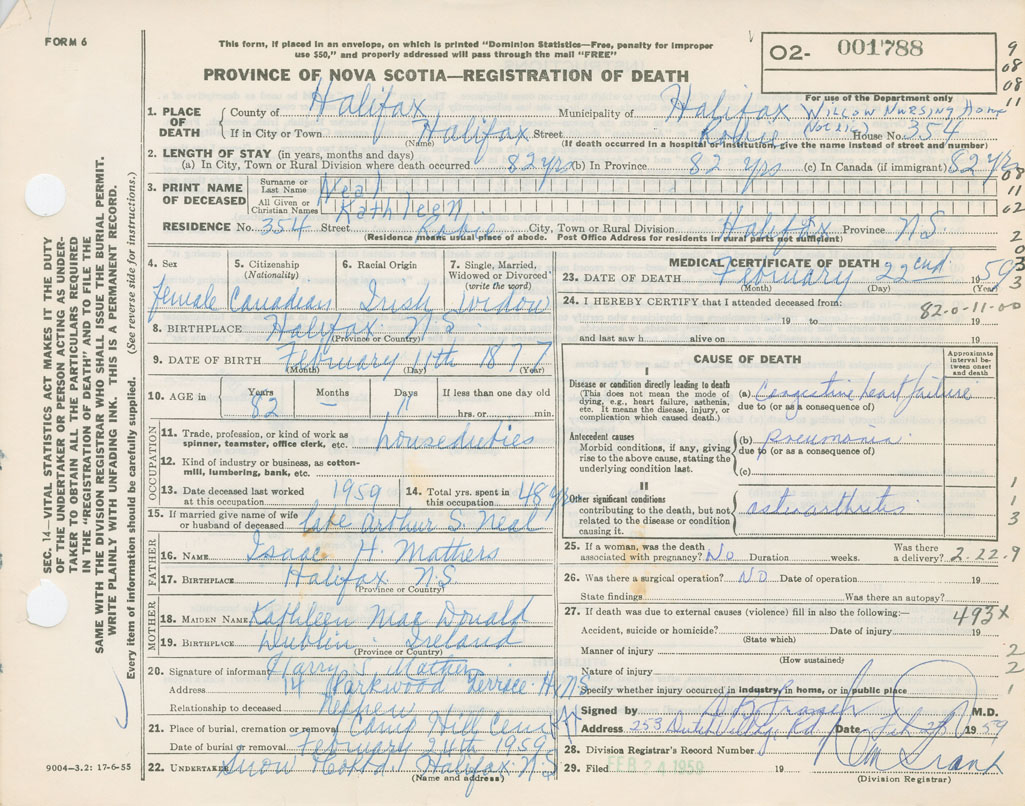 FORM 6
This form, if placed in an envelope, on which is printed "Dominion Statistics—Free, penalty for improper
use $50," and properly addressed will pass through the mail "FREE"
PROVINCE OF NOVA SCOTIA—REGISTRATION OF DEATH
02- 001788
For use of the Department only
9
08
08
11
1. PLACE OF DEATH
County of Halifax Municipality of Halifax Willow Nursing Home
If in City or Town Halifax Street Robie House No. 354
(Name) (If death occurred in a hospital or institution, give the name instead of street and number)
2. LENGTH OF STAY (in years, months and days)
(a) In City, Town or Rural Division where death occurred 82 yrs (b) In Province 82 yrs (c) In Canada (if immigrant) 82 yrs
08
11
02
3. PRINT NAME OF DECEASED
Surname or Last Name Neal
All Given or Christian Names Kathleen
RESIDENCE No. 354 Street Robie City, Town or Rural Division Halifax Province N.S
(Residence means usual place of abode. Post Office Address for residents in rural parts not sufficient)
2
0
3
3
4. Sex female
5. Citizenship (Nationality) Canadian
6. Racial Origin Irish
7. Single, Married, Widowed or Divorced (write the word) widow
8. BIRTHPLACE Halifax N.S
(Province or Country)
9. DATE OF BIRTH February 11th 1877
(Month) (Day) (Year)
10. AGE in Years 82 Months — Days 11 If less than one day old
hrs. or min.
OCCUPATION
11. Trade, profession, or kind of work as spinner, teamster, office clerk, etc. houseduties
12. Kind of industry or business, as cotton-mill, lumbering, bank, etc.
13. Date deceased last worked at this occupation 1959
14. Total yrs. spent in this occupation 48 yrs
15. If married give name of wife or husband of deceased late Arthur S. Neal
FATHER
16. NAME Isaac H. Mathers
17. BIRTHPLACE Halifax N.S
(Province or Country)
MOTHER
18. MAIDEN NAME Kathleen Mac Donald
19. BIRTHPLACE Dublin Ireland
(Province or Country)
20. Signature of informant Harry I. Mathers
Address 14 Parkwood Terrice Hx N.S
Relationship to deceased Nephew
21. Place of burial, cremation or removal Camp Hill Cem
Date of burial or removal February 24th 1959
22. UNDERTAKER Snow Co Ltd Halifax N.S
(Name and address)
MEDICAL CERTIFICATE OF DEATH
23. DATE OF DEATH February 22nd 1959
(Month) (Day) (Year)
24. I HEREBY CERTIFY that I attended deceased from:
82-0-11-00
19 to 19
and last saw h alive on 19
CAUSE OF DEATH
Approximate interval between onset and death
I
Disease or condition directly leading to death
(This does not mean the mode of dying, e.g., heart failure, asthenia, etc. It means the disease, injury, or complication which caused death.)
(a) Congestive heart failure
due to (or as a consequence of)
Antecedent causes
Morbid conditions, if any, giving rise to the above cause, stating the underlying condition last.
(b) Pneumonia
due to (or as a consequence of)
(c)
II
Other significant conditions
contributing to the death, but not related to the disease or condition causing it.
osteoarthritis
1
1
3
25. If a woman, was the death associated with pregnancy? No Duration weeks. Was there a delivery? 2-22-9
26. Was there a surgical operation? NO Date of operation 19
State findings Was there an autopsy?
27. If death was due to external causes (violence) fill in also the following:— 493x
Accident, suicide or homicide? Date of injury 19
(State which)
Manner of injury
(How sustained)
Nature of injury
Specify whether injury occurred in industry, in home, or in public place
2
2
1
Signed by M.D.
Address 253 Dutch Village Rd Date Feb 23 1959
28. Division Registrar's Record Number
29. Filed FEB 24 1959 19
(Division Registrar)
9004-3.2: 17-6-55
SEC. 14—VITAL STATISTICS ACT MAKES IT THE DUTY
OF THE UNDERTAKER OR PERSON ACTING AS UNDER-
TAKER TO OBTAIN ALL THE PARTICULARS REQUIRED
IN THE "REGISTRATION OF DEATH" AND TO FILE THE
SAME WITH THE DIVISION REGISTRAR WHO SHALL ISSUE THE BURIAL PERMIT.
WRITE PLAINLY WITH UNFADING INK. THIS IS A PERMANENT RECORD.
Every item of information should be carefully supplied. (See reverse side for instructions.)